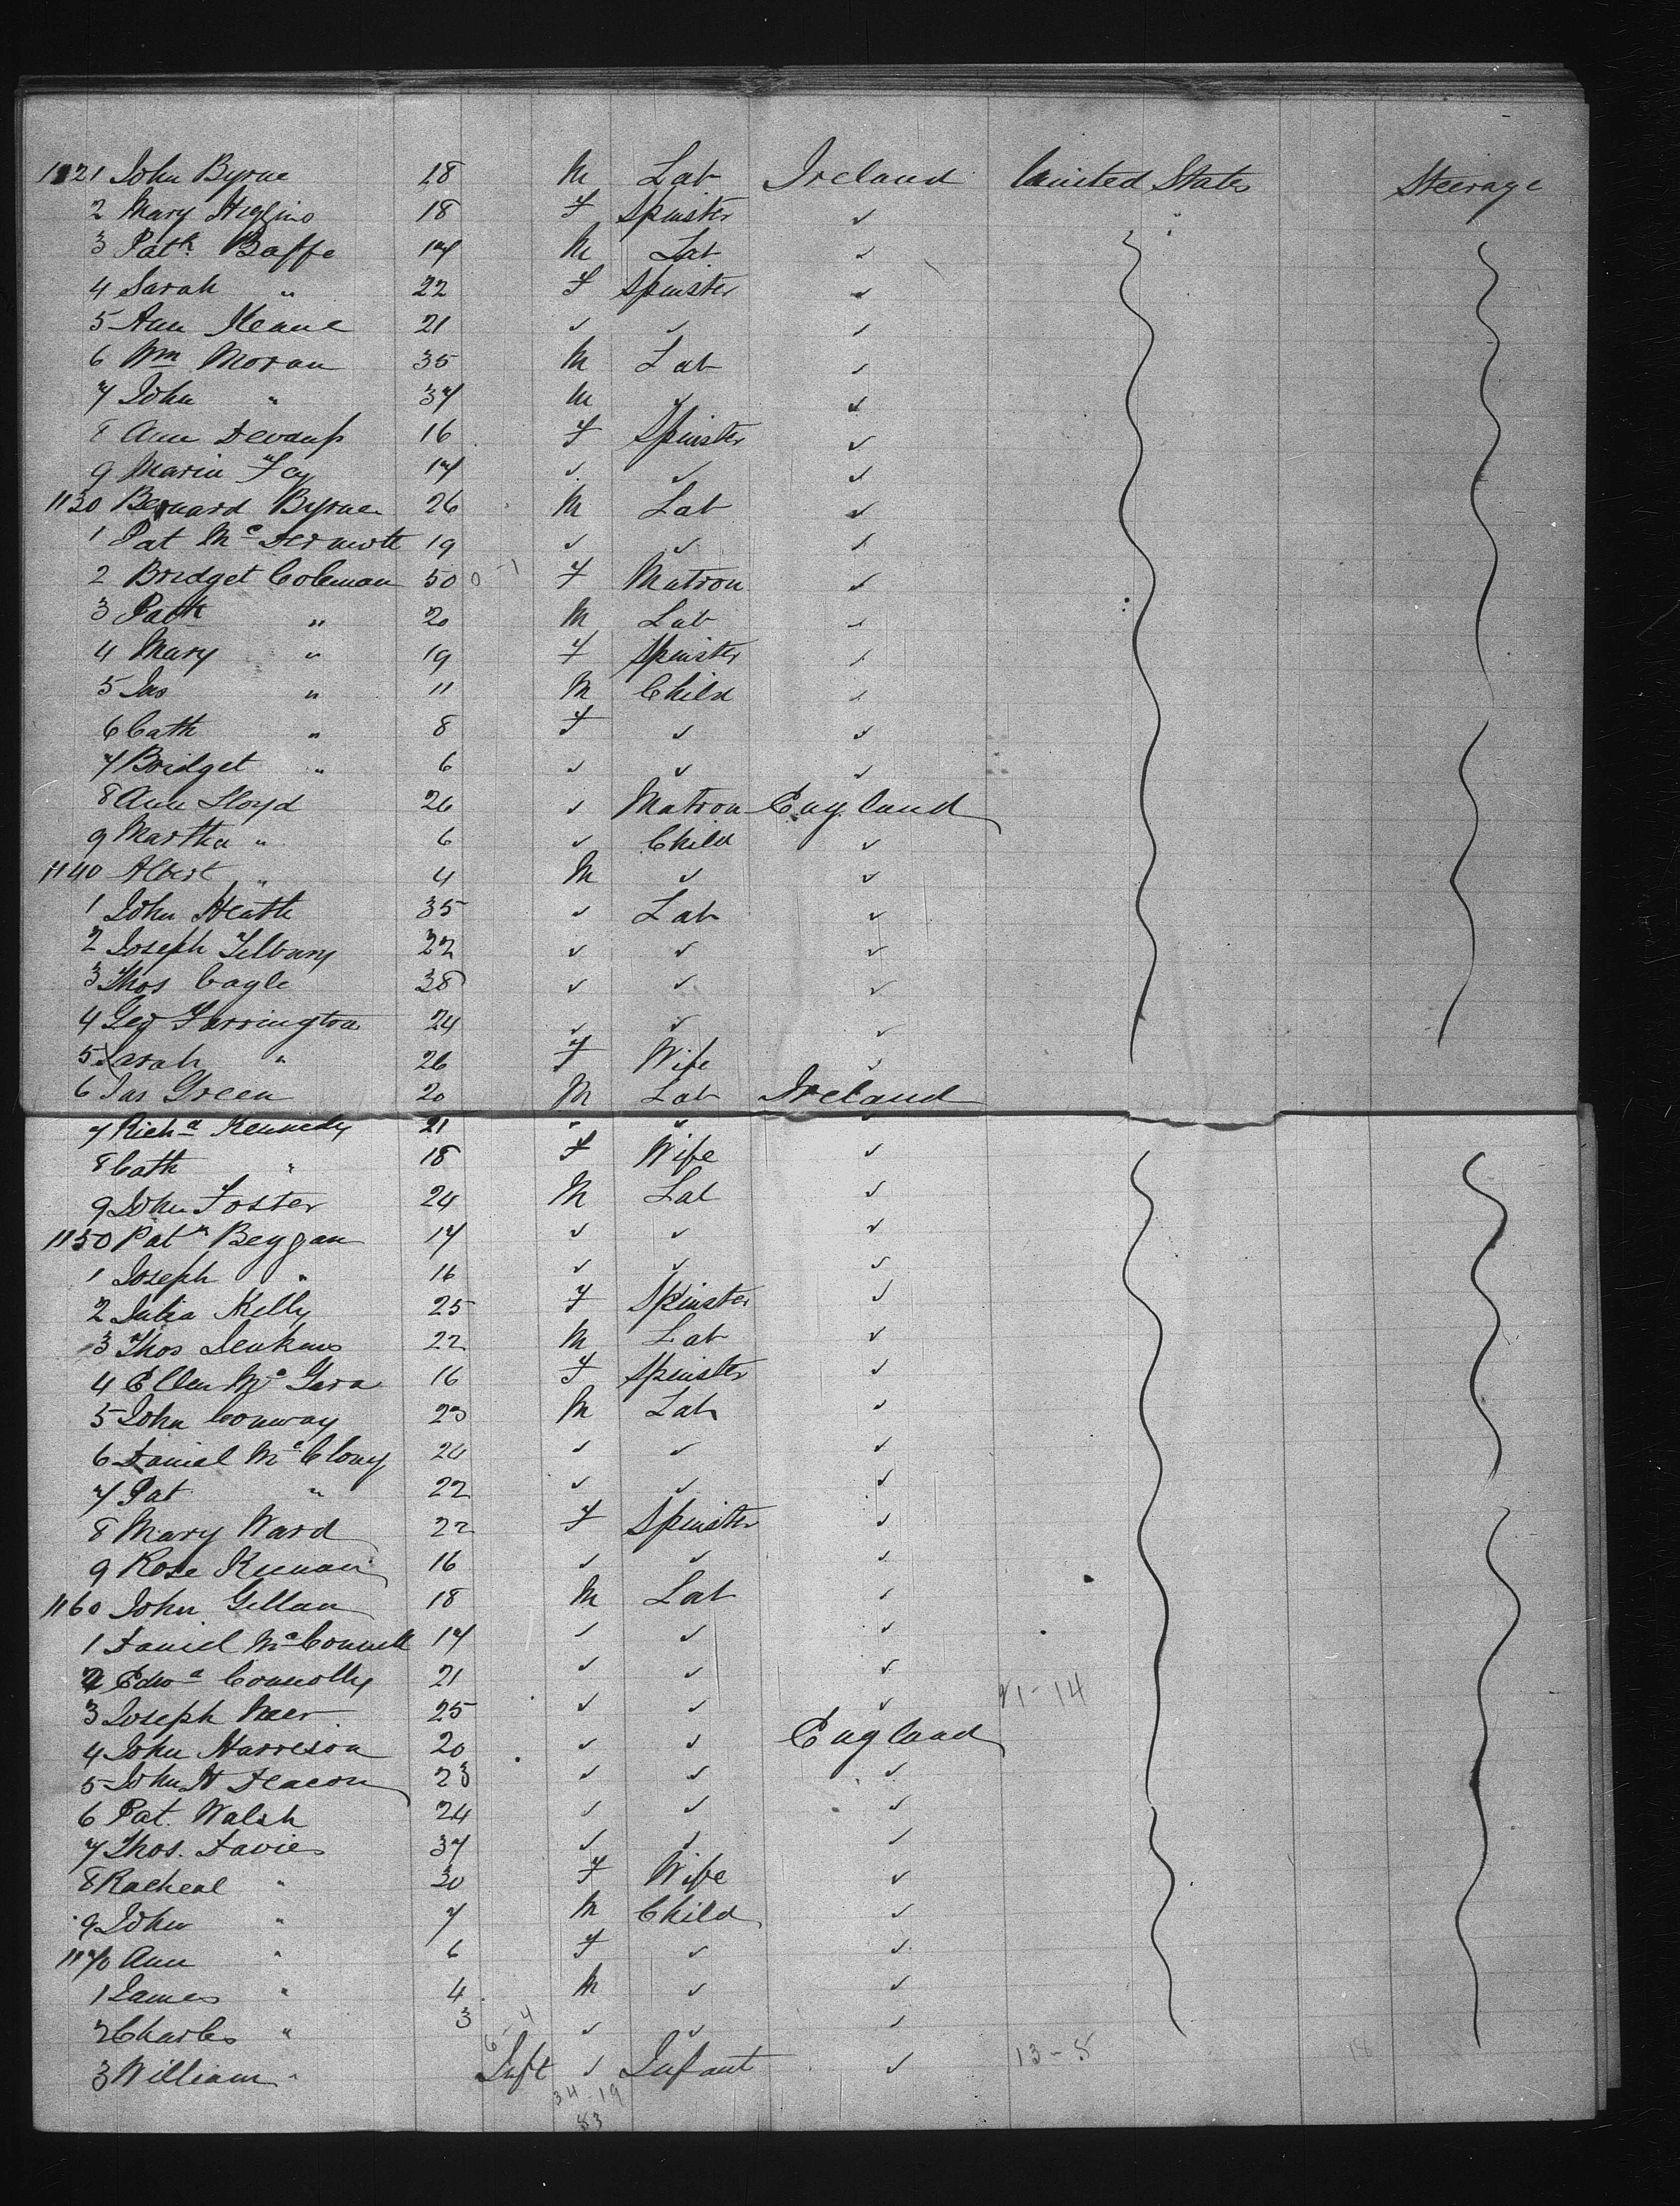 1121 John Byrne 18 M Lab Ireland United States Steerage
2 Mary Higgins 18 F Spinster ✓
3 Patk. 17 M Lab ✓
4 Sarah " 22 F Spinster ✓
5 Ann Keane 21 ✓ ✓ ✓
6 Wm Moran 35 M Lab ✓
7 John " 37 M ✓ ✓
8 Ann 16 F Spinster ✓
9 Maria Fay 17 ✓ ✓ ✓
1130 Bernard Byrne 26 M Lab ✓
1 Pat McDermott 19 ✓ ✓ ✓
2 Bridget Coleman 50 0-1 F Matron ✓
3 Patk " 20 M Lab ✓
4 Mary " 19 F Spinster ✓
5 Jas " 11 M Child ✓
6 Cath " 8 F ✓ ✓
7 Bridget " 6 ✓ ✓ ✓
8 Ann Lloyd 26 ✓ Matron England
9 Martha " 6 ✓ Child ✓
1140 Albert " 4 M ✓ ✓
1 John Heath 35 ✓ Lab ✓
2 Joseph Tilbury 22 ✓ ✓ ✓
3 Thos Cagle 38 ✓ ✓ ✓
4 Geo Farrington 24 ✓ ✓ ✓
5 Sarah " 26 F Wife ✓
6 Jas Green 20 M Lab Ireland
7 Richd Kennedy 21 ✓ ✓ ✓
8 Cath " 18 F Wife ✓
9 John Foster 24 M Lab ✓
1150 Patk Beggan 17 ✓ ✓ ✓
1 Joseph " 16 ✓ ✓ ✓
2 Julia Kelly 25 F Spinster ✓
3 Thos Jenkins 22 M Lab ✓
4 Ellen McGara 16 F Spinster ✓
5 John Conway 20 M Lab ✓
6 Daniel McClony 24 ✓ ✓ ✓
7 Pat " 22 ✓ ✓ ✓
8 Mary Ward 22 F Spinster ✓
9 Rose Kernan 16 ✓ ✓ ✓
1160 John Gillan 18 M Lab ✓
1 Daniel McConnell 17 ✓ ✓ ✓
2 Edwd Connolly 21 ✓ ✓ ✓
3 Joseph 25 ✓ ✓ ✓ 21-14
4 John Harrison 20 ✓ ✓ England
5 John H Deacon 23 ✓ ✓ ✓
6 Pat. Walsh 24 ✓ ✓ ✓
7 Thos. Davies 37 ✓ ✓ ✓
8 Racheal " 30 F Wife ✓
9 John " 7 M Child ✓
1170 Ann " 6 F ✓ ✓
1 James " 4 M ✓ ✓
2 Charles " 3 6-4 ✓ ✓ ✓
3 William " Inft ✓ Infant ✓ 13-5
34-19
53